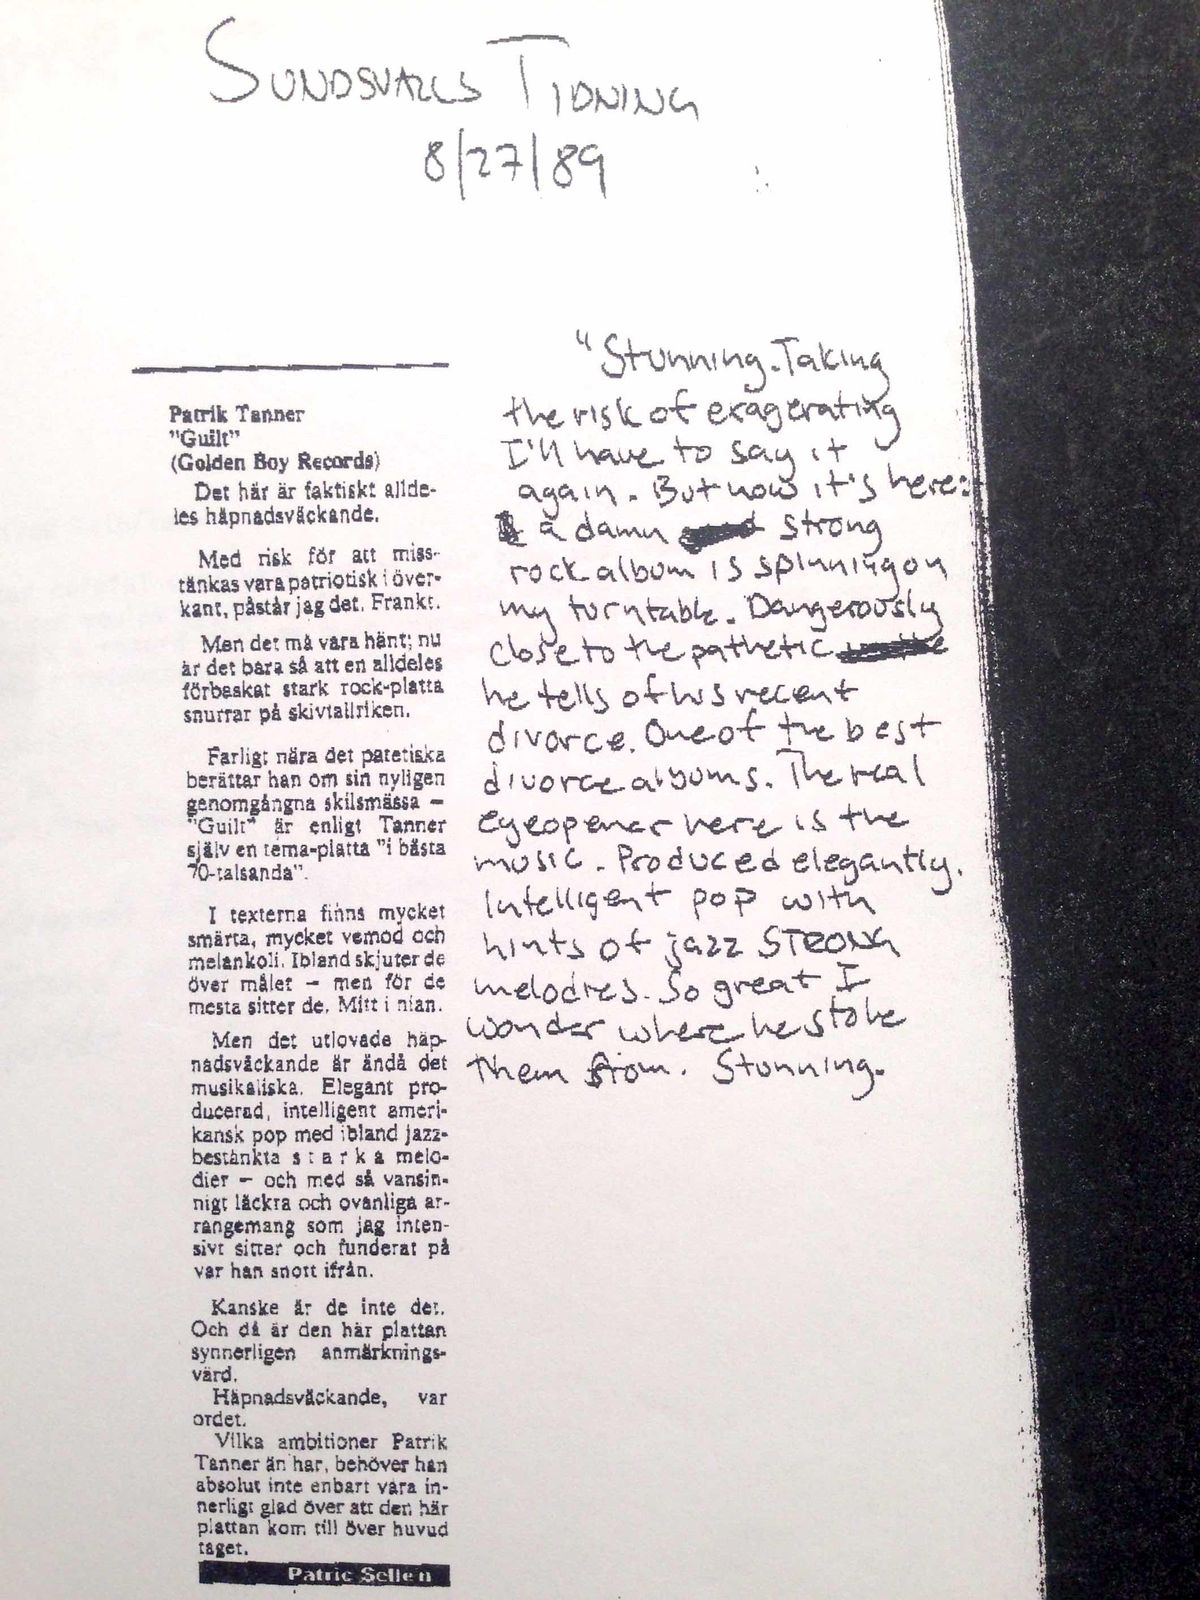 SUNDSVALLS TIDNING
8/27/89
Patrik Tanner
"Guilt"
(Golden Boy Records)
Det här är faktiskt allde-
les häpnadsväckande.
Med risk för att miss-
tänkas vara patriotisk i över-
kant, påstår jag det. Frankt.
Men det må vara hänt; nu
är det bara så att en alldeles
förbaskat stark rock-platta
snurrar på skivtallriken.
Farligt nära det patetiska
berättar han om sin nyligen
genomgångna skilsmässa —
"Guilt" är enligt Tanner
själv en tema-platta "i bästa
70-talsanda".
I texterna finns mycket
smärta, mycket vemod och
melankoli. Ibland skjuter de
över målet — men för de
mesta sitter de. Mitt i nian.
Men det utlovade häp-
nadsväckande är ändå det
musikaliska. Elegant pro-
ducerad, intelligent ameri-
kansk pop med ibland jazz-
bestänkta s t a r k a melo-
dier — och med så vansin-
nigt läckra och ovanliga ar-
rangemang som jag inten-
sivt sitter och funderat på
var han snott ifrån.
Kanske är de inte det.
Och då är den här plattan
synnerligen anmärknings-
värd.
Häpnadsväckande, var
ordet.
Vilka ambitioner Patrik
Tanner än har, behöver han
absolut inte enbart vara in-
nerligt glad över att den här
plattan kom till över huvud
taget.
Patric Sellen
"Stunning. Taking
the risk of exagerating
I'll have to say it
again. But now it's here:
a damn strong
rock album is spinning on
my turntable. Dangerously
close to the pathetic
he tells of his recent
divorce. One of the best
divorce albums. The real
eyeopener here is the
music. Produced elegantly.
Intelligent pop with
hints of jazz STRONG
melodies. So great I
wonder where he stole
them from. Stunning.